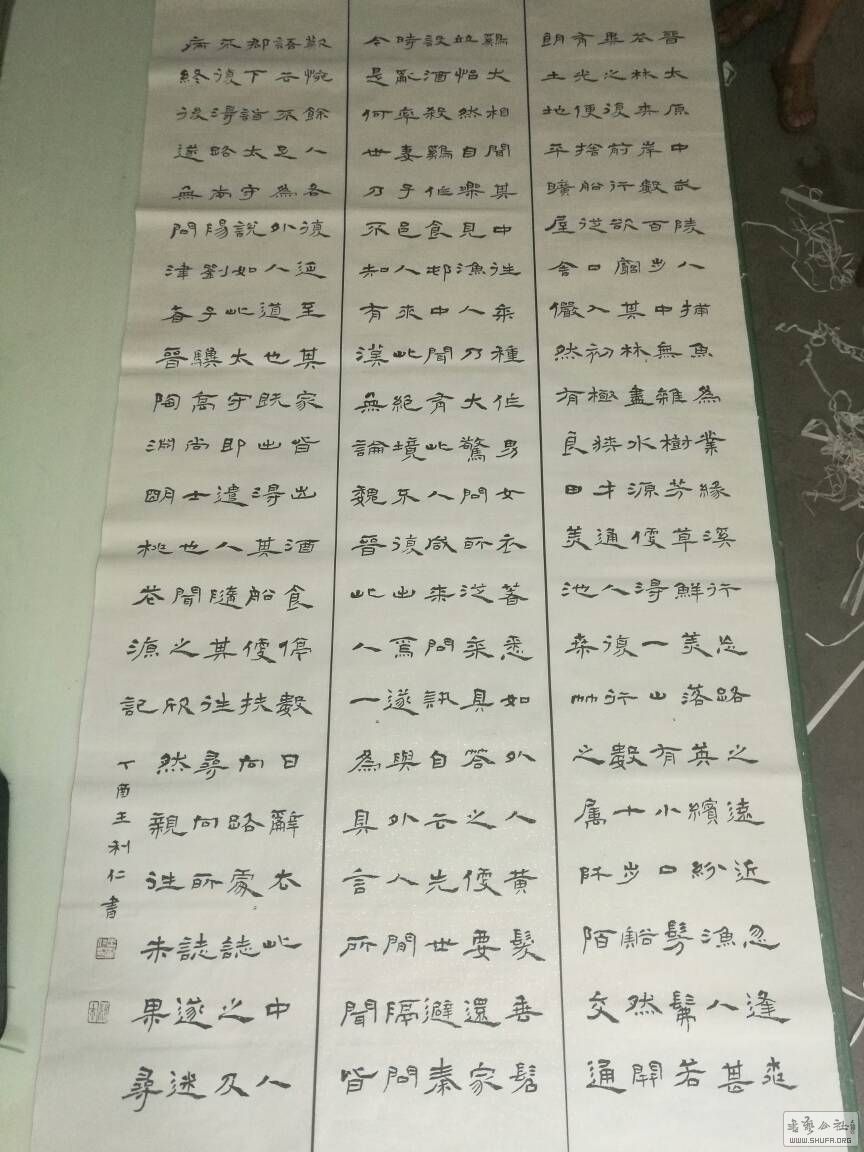 晉太原中武陵人捕魚為業緣溪行忘路之遠近忽逢桃
花林夾岸數百步中無雜樹芳草鮮美落英繽紛漁人甚
異之復前行欲窮其林盡水源便得一山有小口髣髴若
有光便捨船從口入初極狹才通人復行數十步豁然開
朗土地平曠屋舍儼然有良田美池桑竹之属阡陌交通
鷄犬相聞其中往來種作男女衣著悉如外人黃髮垂髫
並怡然自樂見漁人乃大驚問所從來具答之便要還家
設酒殺鷄作食邨中聞有此人咸來問訊自云先世避秦
時亂率妻子邑人來此絕境不復出焉遂與外人間隔問
今是何世乃不知有漢無論魏晉此人一為具言所聞皆
歎惋餘人各復延至其家皆出酒食停數日辭去此中人
語云不足為外人道也既出得其船便扶向路處誌之及
郡下詣太守說如此太守即遣人隨其往尋向所誌遂迷
不復得路南陽劉子驥高尚士也聞之欣然親往未果尋
病終後遂無問津者晉陶淵明桃花源記
丁酉王利仁書
WWW.SHUFA.ORG